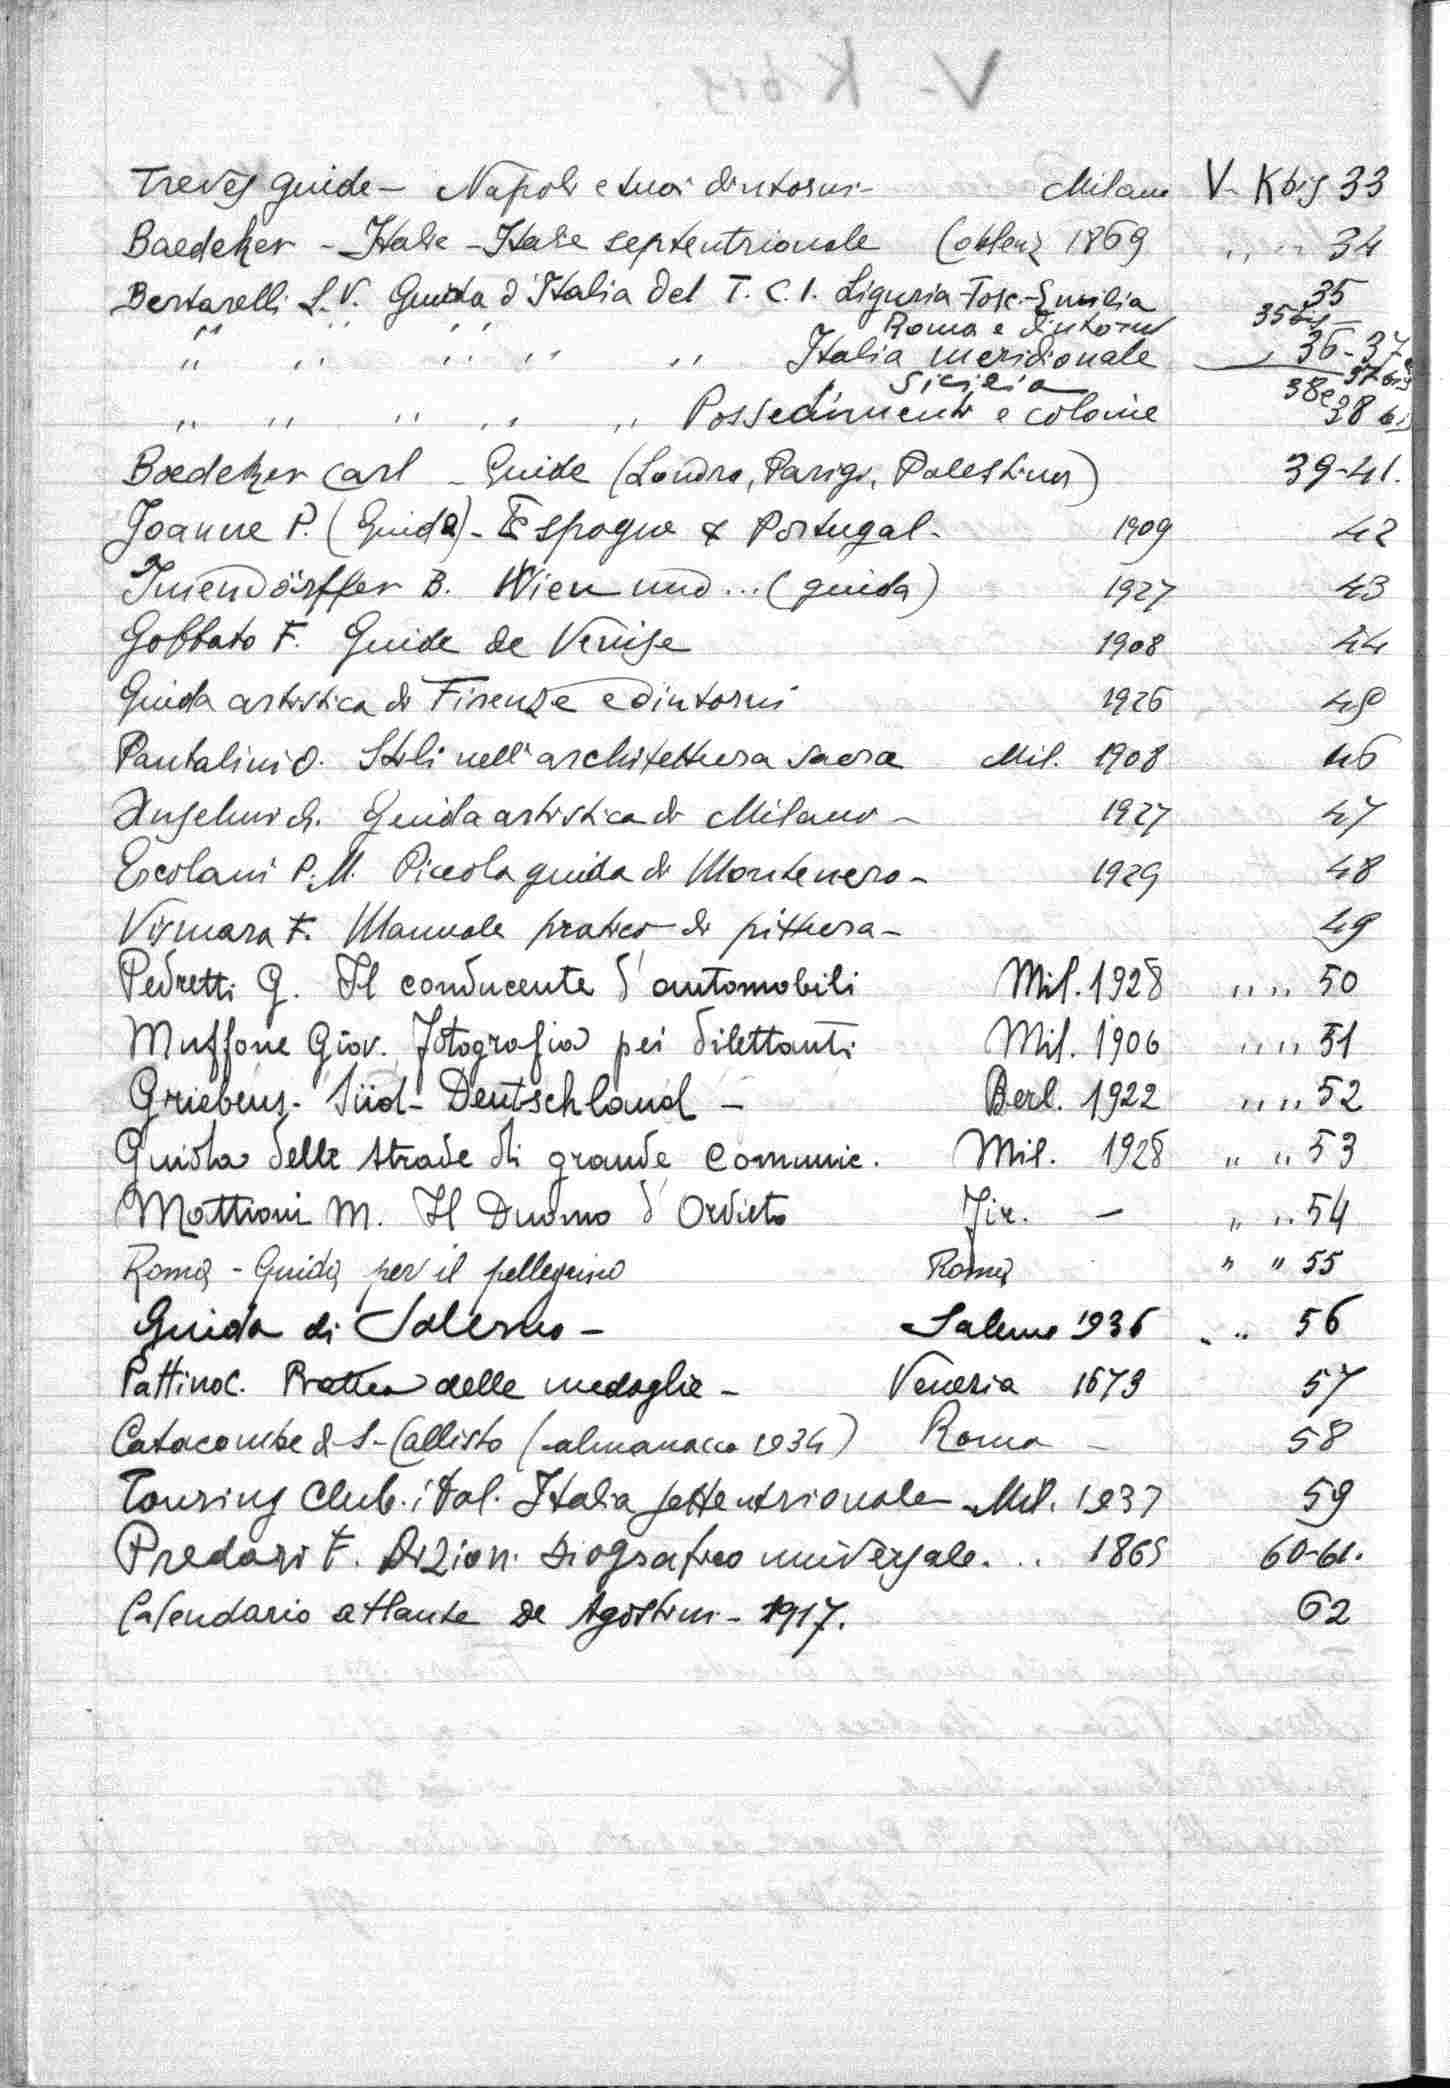 Treves guide - Napoli e suoi dintorni - Milano V - K bis 33
Baedeker - Italie - Italie septentrionale Coblenz 1869 " " 34
Bertarelli L.V. Guida d'Italia del T.C.I. Liguria - Tosc. - Emilia 35
Roma e dintorni 35 bis
" " " " " Italia meridionale 36-37
Sicilia 37 bis
" " " " " Possedimenti e colonie 38 e 38 bis
Baedeker Carl - Guide (Londra, Parigi, Palestina) 39-41.
Joanne P. (Guide) - Espagne & Portugal - 1909 42
Imendörffer B. Wien und ... (guida) 1927 43
Gobbato F. Guide de Venise 1908 44
Guida artistica di Firenze e dintorni 1926 45
Pantalini O. Stili nell'architettura sacra Mil. 1908 46
Anselmi A. Guida artistica di Milano - 1927 47
Ercolani P.M. Piccola guida di Montenero - 1929 48
Vismara F. Manuale pratico di pittura - 49
Pedretti G. Il conducente d'automobili Mil. 1928 " " 50
Muffone Giov. Fotografia pei dilettanti Mil. 1906 " " 51
Griebens - Süd - Deutschland - Berl. 1922 " " 52
Guida delle strade di grande comunic. Mil. 1928 " " 53
Mattioni M. Il Duomo d'Orvieto Fir. - " " 54
Roma - Guida per il pellegrino Roma " " 55
Guida di Salerno - Salerno 1936 " " 56
Pattino C. Pratica delle medaglie - Venezia 1673 57
Catacombe di S. Callisto (almanacco 1934) Roma - 58
Touring Club. ital. Italia settentrionale Mil. 1937 59
Predari F. Dizion. biografico universale. . 1865 60-61.
Calendario atlante De Agostini - 1917. 62